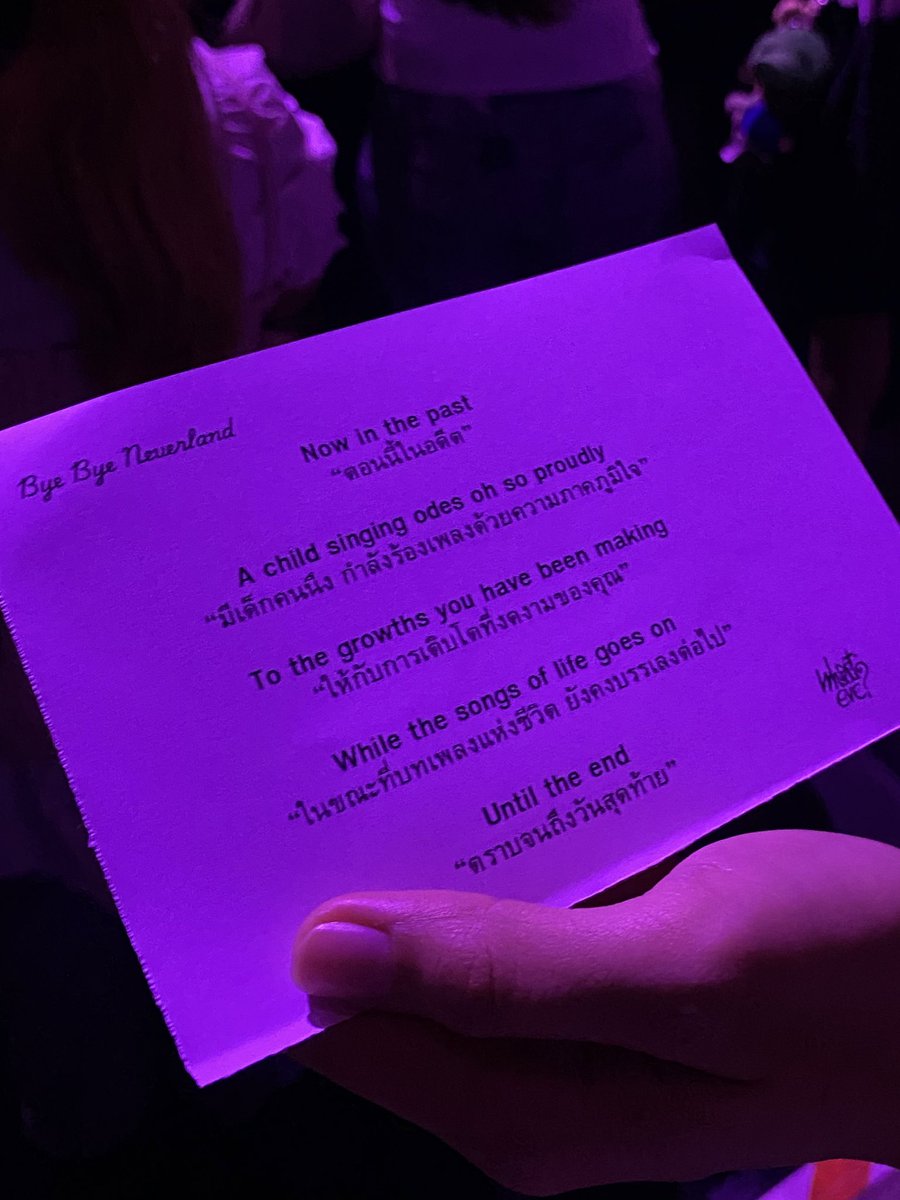 Bye Bye Neverland
Now in the past
“ตอนนี้ในอดีต”
A child singing odes oh so proudly
“มีเด็กคนนึง กำลังร้องเพลงด้วยความภาคภูมิใจ”
To the growths you have been making
“ให้กับการเติบโตที่งดงามของคุณ”
While the songs of life goes on
“ในขณะที่บทเพลงแห่งชีวิต ยังคงบรรเลงต่อไป”
Until the end
“ตราบจนถึงวันสุดท้าย”